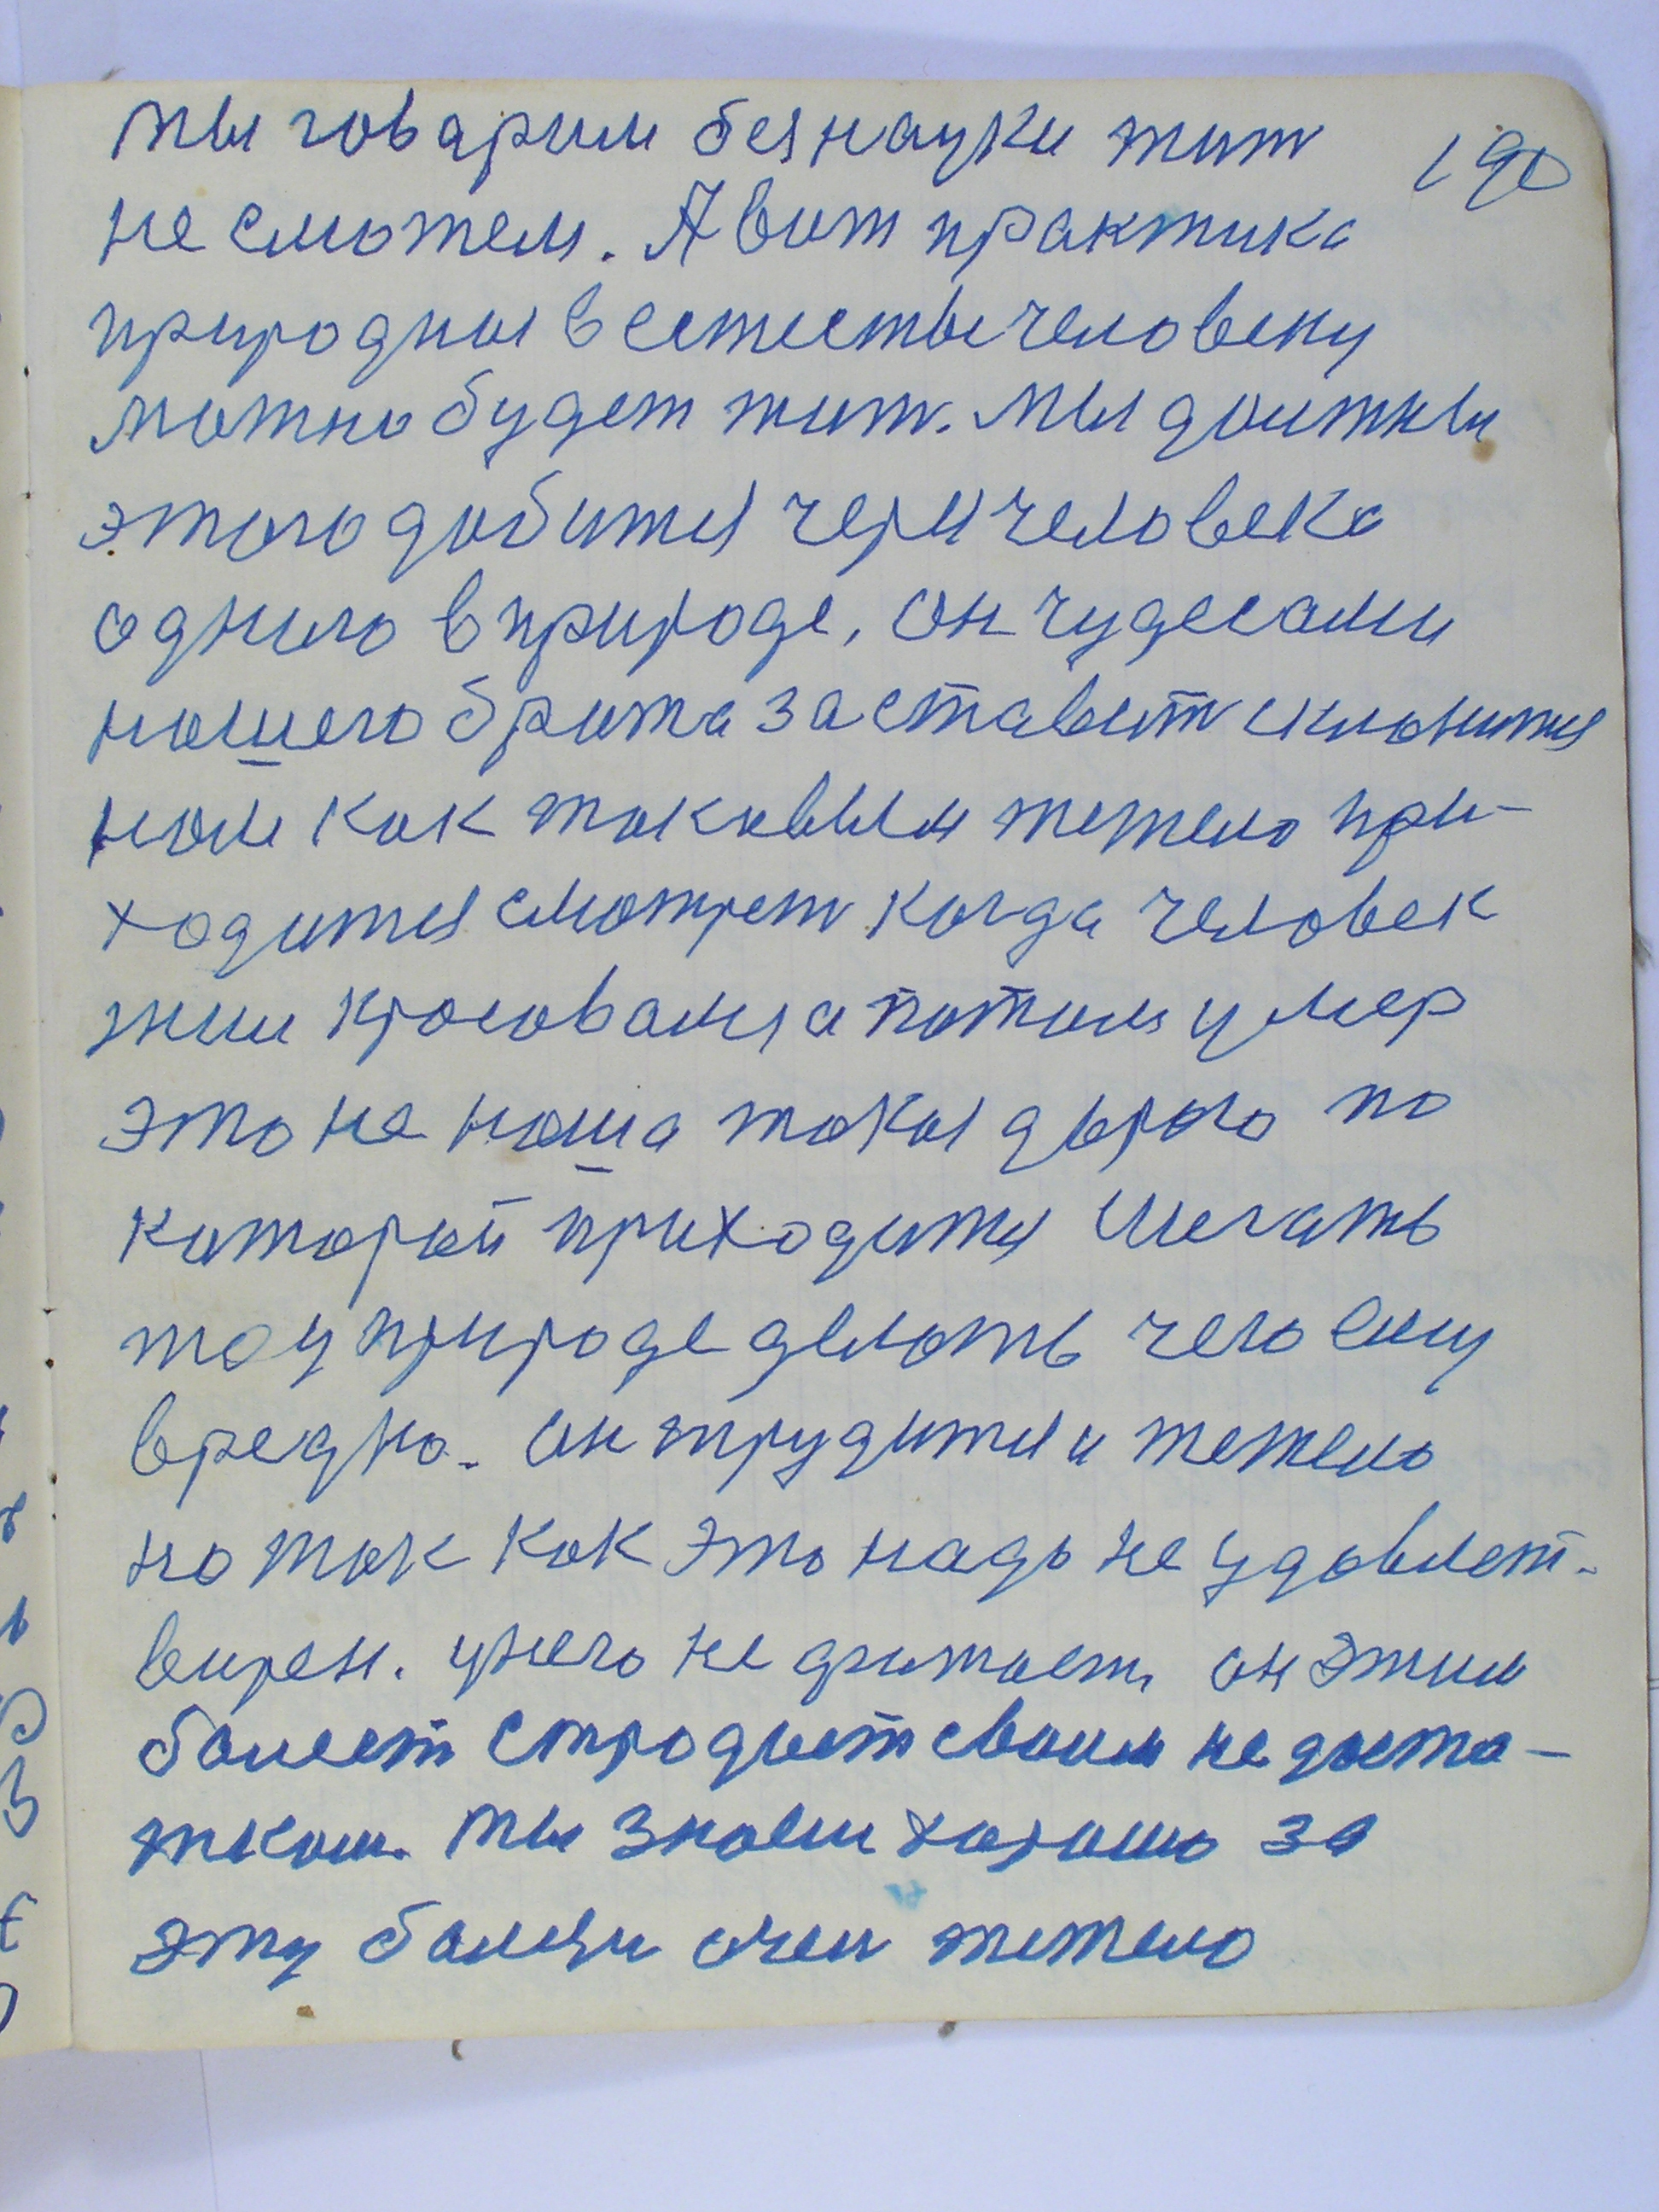 мы говарим без науки жит 190
не сможем. А вот практика
природная в естестве человеку
можно будет жит. Мы должны
этого добится через человека
одного в природе, он чудесами
нашего брата заставит склонится
нам как таковым тежело при-
ходится смотрет когда человек
жил красовался а потом умер
это не наша такая дорога по
каторой приходится шегать
та у природе делать чего ему
вредно. он трудится и тежело
но так как это надо не удовлет-
ворен. у него не хватает он этим
болеет страдает своим недоста-
тком. мы знаем хорошо за
эту болезн очен тежело